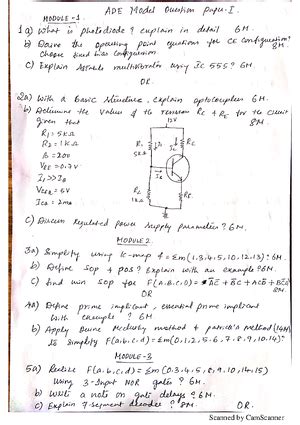 ADE Model Question Paper-I.
MODULE-1
1a) What is photodiode? explain in detail 6M.
b) Derive the operating point equations for CE configuration?
Choose fixed bias configuration 8M
c) Explain Astable multivibrator using IC 555? 6M.
OR
2a) With a basic structure, explain optocouplers 6M.
b) Determine the values of the resistors Rc & RE for the circuit
given that 8M
R1 = 5KΩ
R2 = 1KΩ
β = 200
VBE = 0.7V
I1 >> IB
VCEQ = 6V
ICQ = 2mA
12V
R1
5KΩ
I1
Ic
Rc
IB
R2
1KΩ
RE
c) Discuss regulated power supply parameters? 6M.
MODULE 2
3a) Simplify using K-map f = Σm(1,3,4,5,10,12,13)? 6M.
b) Define SOP & POS? Explain with an example? 6M.
c) find min SOP for F(a.b.c.d) = 8M
OR
4a) Define prime implicant, essential prime implicant
with example? 6M
b) Apply Quine McClusky method & patrick's Method (14M)
to simplify f(a,b,c,d) = Σm(0,1,2,5,6,7,8,9,10,14)?
MODULE-3
5a) Realize F(a,b,c,d) = Σm(0.3.4.5,8.9,10,14,15)
using 3-Input NOR gate? 6M.
b) Write a note on gate delays? 6M.
c) Explain 7-segment decoder? 8M.
OR
Scanned by CamScanner